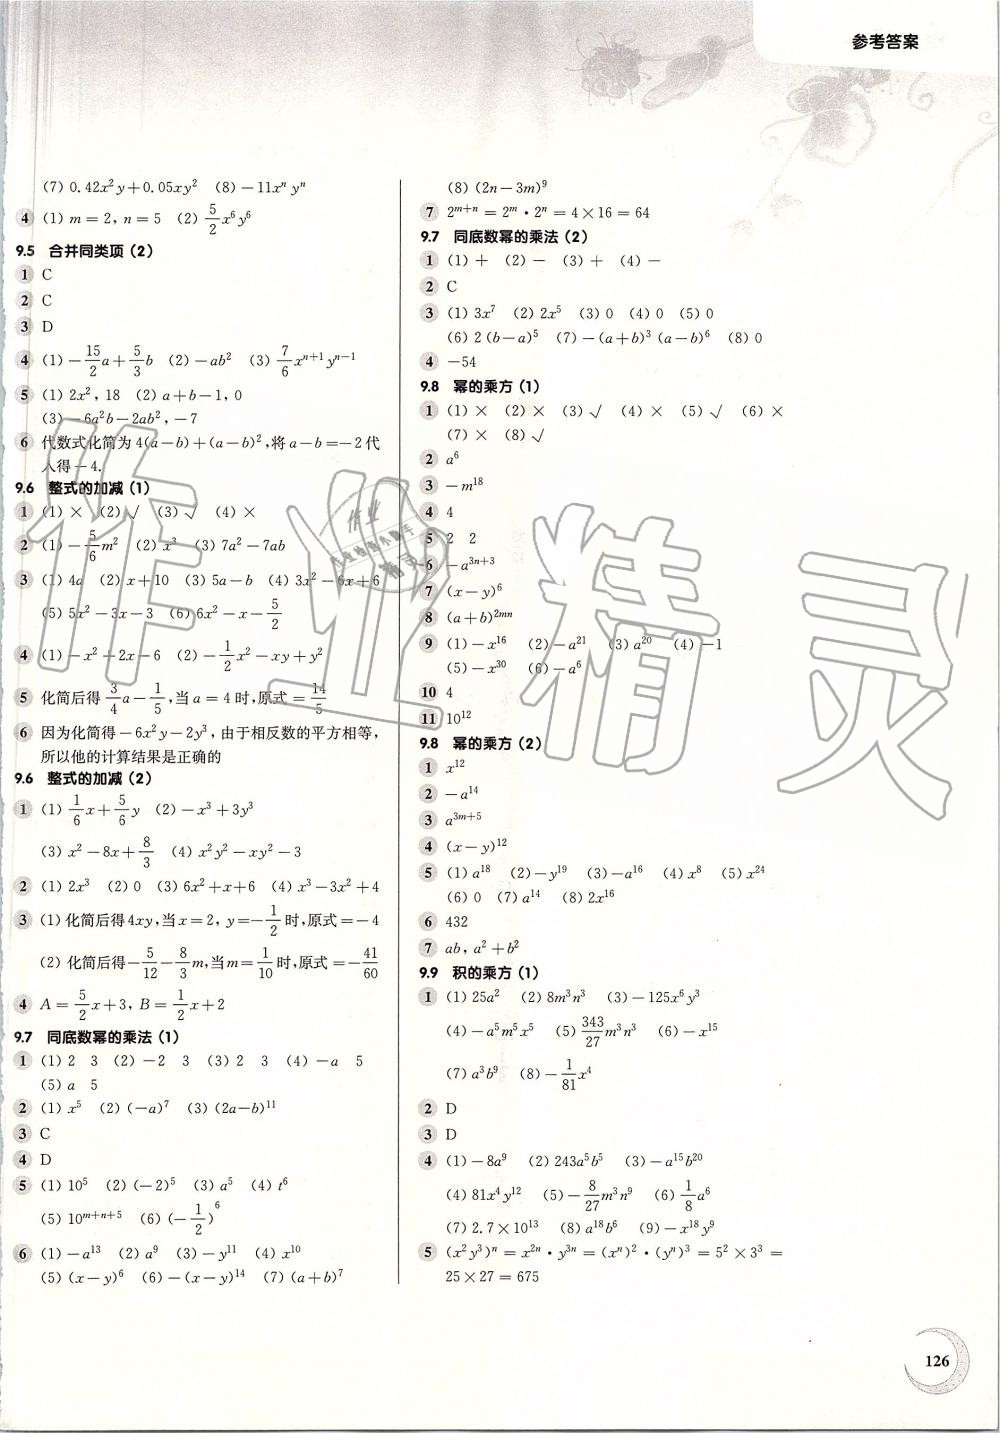 参考答案
(7) 0.42x²y+0.05xy² (8) －11xⁿyⁿ
4 (1) m＝2, n＝5 (2) 5/2 x⁶y⁶
9.5 合并同类项(2)
1 C
2 C
3 D
4 (1) －15/2 a＋5/3 b (2) －ab² (3) 7/6 xⁿ⁺¹yⁿ⁻¹
5 (1) 2x², 18 (2) a＋b－1, 0
(3) －6a²b－2ab², －7
6 代数式化简为 4(a－b)＋(a－b)²,将 a－b＝－2代
入得－4.
9.6 整式的加减(1)
1 (1) × (2) √ (3) √ (4) ×
2 (1) －5/6 m² (2) x³ (3) 7a²－7ab
3 (1) 4a (2) x＋10 (3) 5a－b (4) 3x²－6x＋6
(5) 5x²－3x－3 (6) 6x²－x－5/2
4 (1) －x²＋2x－6 (2) －1/2 x²－xy＋y²
5 化简后得 3/4 a－1/5,当 a＝4时,原式＝14/5
6 因为化简得－6x²y－2y³,由于相反数的平方相等,
所以他的计算结果是正确的
9.6 整式的加减(2)
1 (1) 1/6 x＋5/6 y (2) －x³＋3y³
(3) x²－8x＋8/3 (4) x²y²－xy²－3
2 (1) 2x³ (2) 0 (3) 6x²＋x＋6 (4) x³－3x²＋4
3 (1) 化简后得4xy,当x＝2, y＝－1/2时,原式＝－4
(2) 化简后得－5/12－8/3 m,当m＝1/10时,原式＝－41/60
4 A＝5/2 x＋3, B＝1/2 x＋2
9.7 同底数幂的乘法(1)
1 (1) 2 3 (2) －2 3 (3) 2 3 (4) －a 5
(5) a 5
2 (1) x⁵ (2) (－a)⁷ (3) (2a－b)¹¹
3 C
4 D
5 (1) 10⁵ (2) (－2)⁵ (3) a⁵ (4) t⁶
(5) 10ᵐ⁺ⁿ⁺⁵ (6) (－1/2)⁶
6 (1) －a¹³ (2) a⁹ (3) －y¹¹ (4) x¹⁰
(5) (x－y)⁶ (6) －(x－y)¹⁴ (7) (a＋b)⁷
(8) (2n－3m)⁹
7 2ᵐ⁺ⁿ＝2ᵐ·2ⁿ＝4×16＝64
9.7 同底数幂的乘法(2)
1 (1) ＋ (2) － (3) ＋ (4) －
2 C
3 (1) 3x⁷ (2) 2x⁵ (3) 0 (4) 0 (5) 0
(6) 2(b－a)⁵ (7) －(a＋b)³(a－b)⁶ (8) 0
4 －54
9.8 幂的乘方(1)
1 (1) × (2) × (3) √ (4) × (5) √ (6) ×
(7) × (8) √
2 a⁶
3 －m¹⁸
4 4
5 2 2
6 －a³ⁿ⁺³
7 (x－y)⁶
8 (a＋b)²ᵐⁿ
9 (1) －x¹⁶ (2) －a²¹ (3) a²⁰ (4) －1
(5) －x³⁰ (6) －a⁶
10 4
11 10¹²
9.8 幂的乘方(2)
1 x¹²
2 －a¹⁴
3 a³ᵐ⁺⁵
4 (x－y)¹²
5 (1) a¹⁸ (2) －y¹⁹ (3) －a¹⁶ (4) x⁸ (5) x²⁴
(6) 0 (7) a¹⁴ (8) 2x¹⁶
6 432
7 ab, a²＋b²
9.9 积的乘方(1)
1 (1) 25a² (2) 8m³n³ (3) －125x⁶y³
(4) －a⁵m⁵x⁵ (5) 343/27 m³n³ (6) －x¹⁵
(7) a³b⁹ (8) －1/81 x⁴
2 D
3 D
4 (1) －8a⁹ (2) 243a⁵b⁵ (3) －a¹⁵b²⁰
(4) 81x⁴y¹² (5) －8/27 m³n⁹ (6) 1/8 a⁶
(7) 2.7×10¹³ (8) a¹⁸b⁶ (9) －x¹⁸y⁹
5 (x²y³)ⁿ＝x²ⁿ·y³ⁿ＝(xⁿ)²·(yⁿ)³＝5²×3³＝
25×27＝675
126
作业精灵